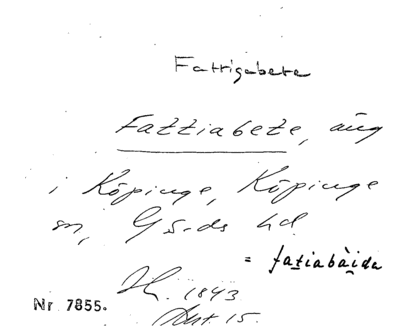 Fattigabete
Fattiabete, äng
i Köpinge, Köpinge
sn, Gärds hd
= fatiabàida
1843
Akt. 15.
Nr 7855.